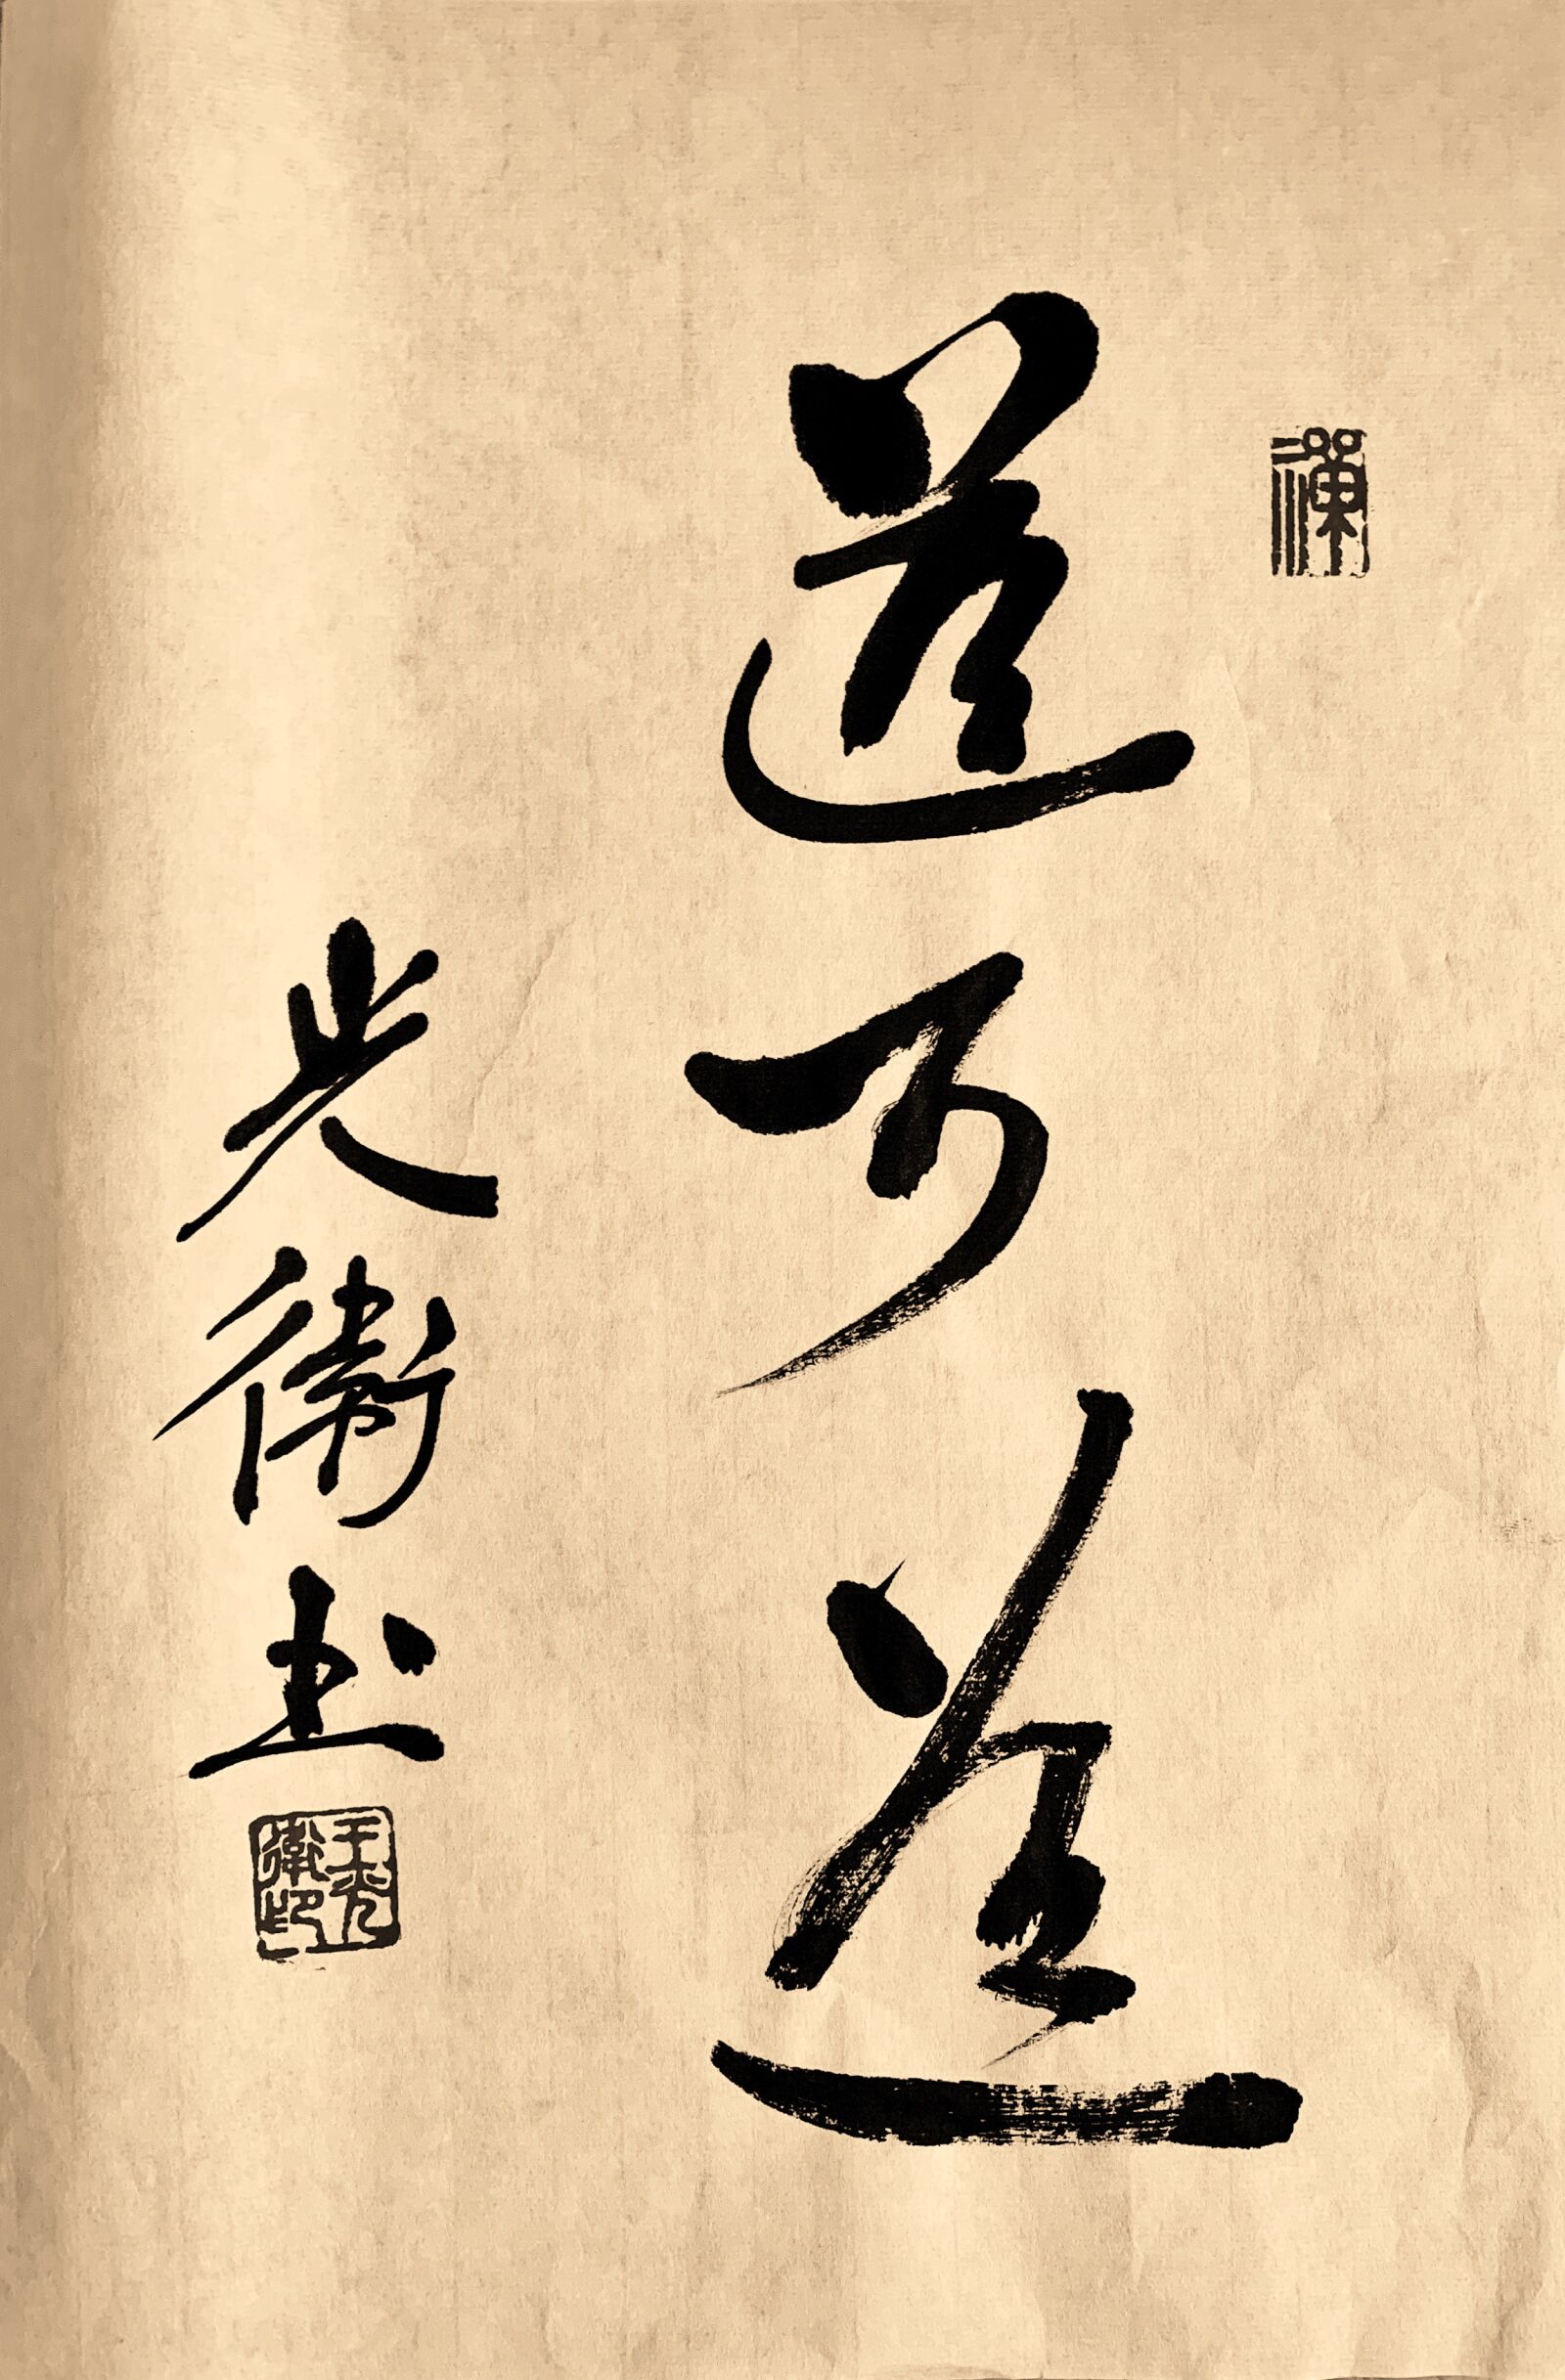 禅
道可道
光衛书
王光衛印